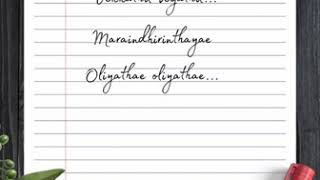 Maraindhirinthayae
Oliyathae oliyathae...